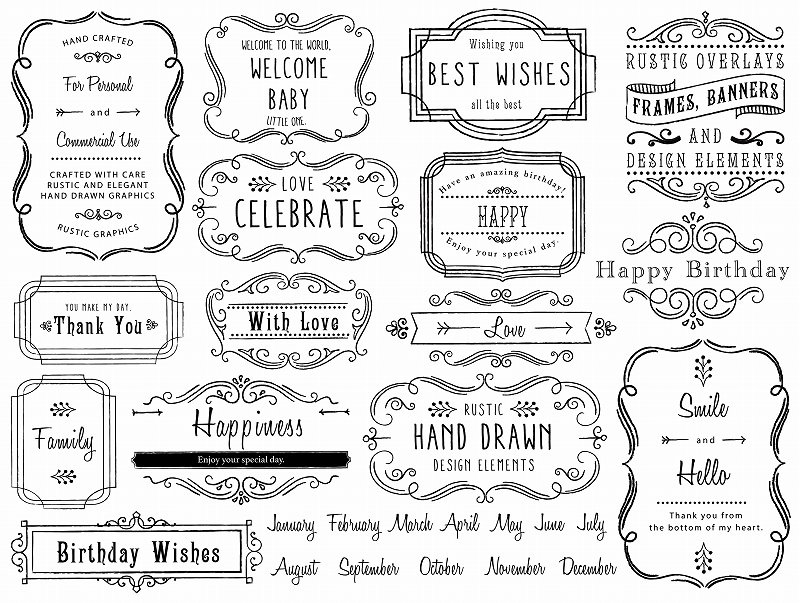 HAND CRAFTED
For Personal
and
Commercial Use
CRAFTED WITH CARE
RUSTIC AND ELEGANT
HAND DRAWN GRAPHICS
RUSTIC GRAPHICS
WELCOME TO THE WORLD,
WELCOME
BABY
LITTLE ONE.
Wishing you
BEST WISHES
all the best
RUSTIC OVERLAYS
FRAMES, BANNERS
AND
DESIGN ELEMENTS
LOVE
CELEBRATE
Have an amazing birthday!
HAPPY
Enjoy your special day.
Happy Birthday
YOU MAKE MY DAY.
Thank You
With Love
Love
Family
Happiness
Enjoy your special day.
RUSTIC
HAND DRAWN
DESIGN ELEMENTS
Smile
and
Hello
Thank you from
the bottom of my heart.
Birthday Wishes
January February March April May June July
August September October November December